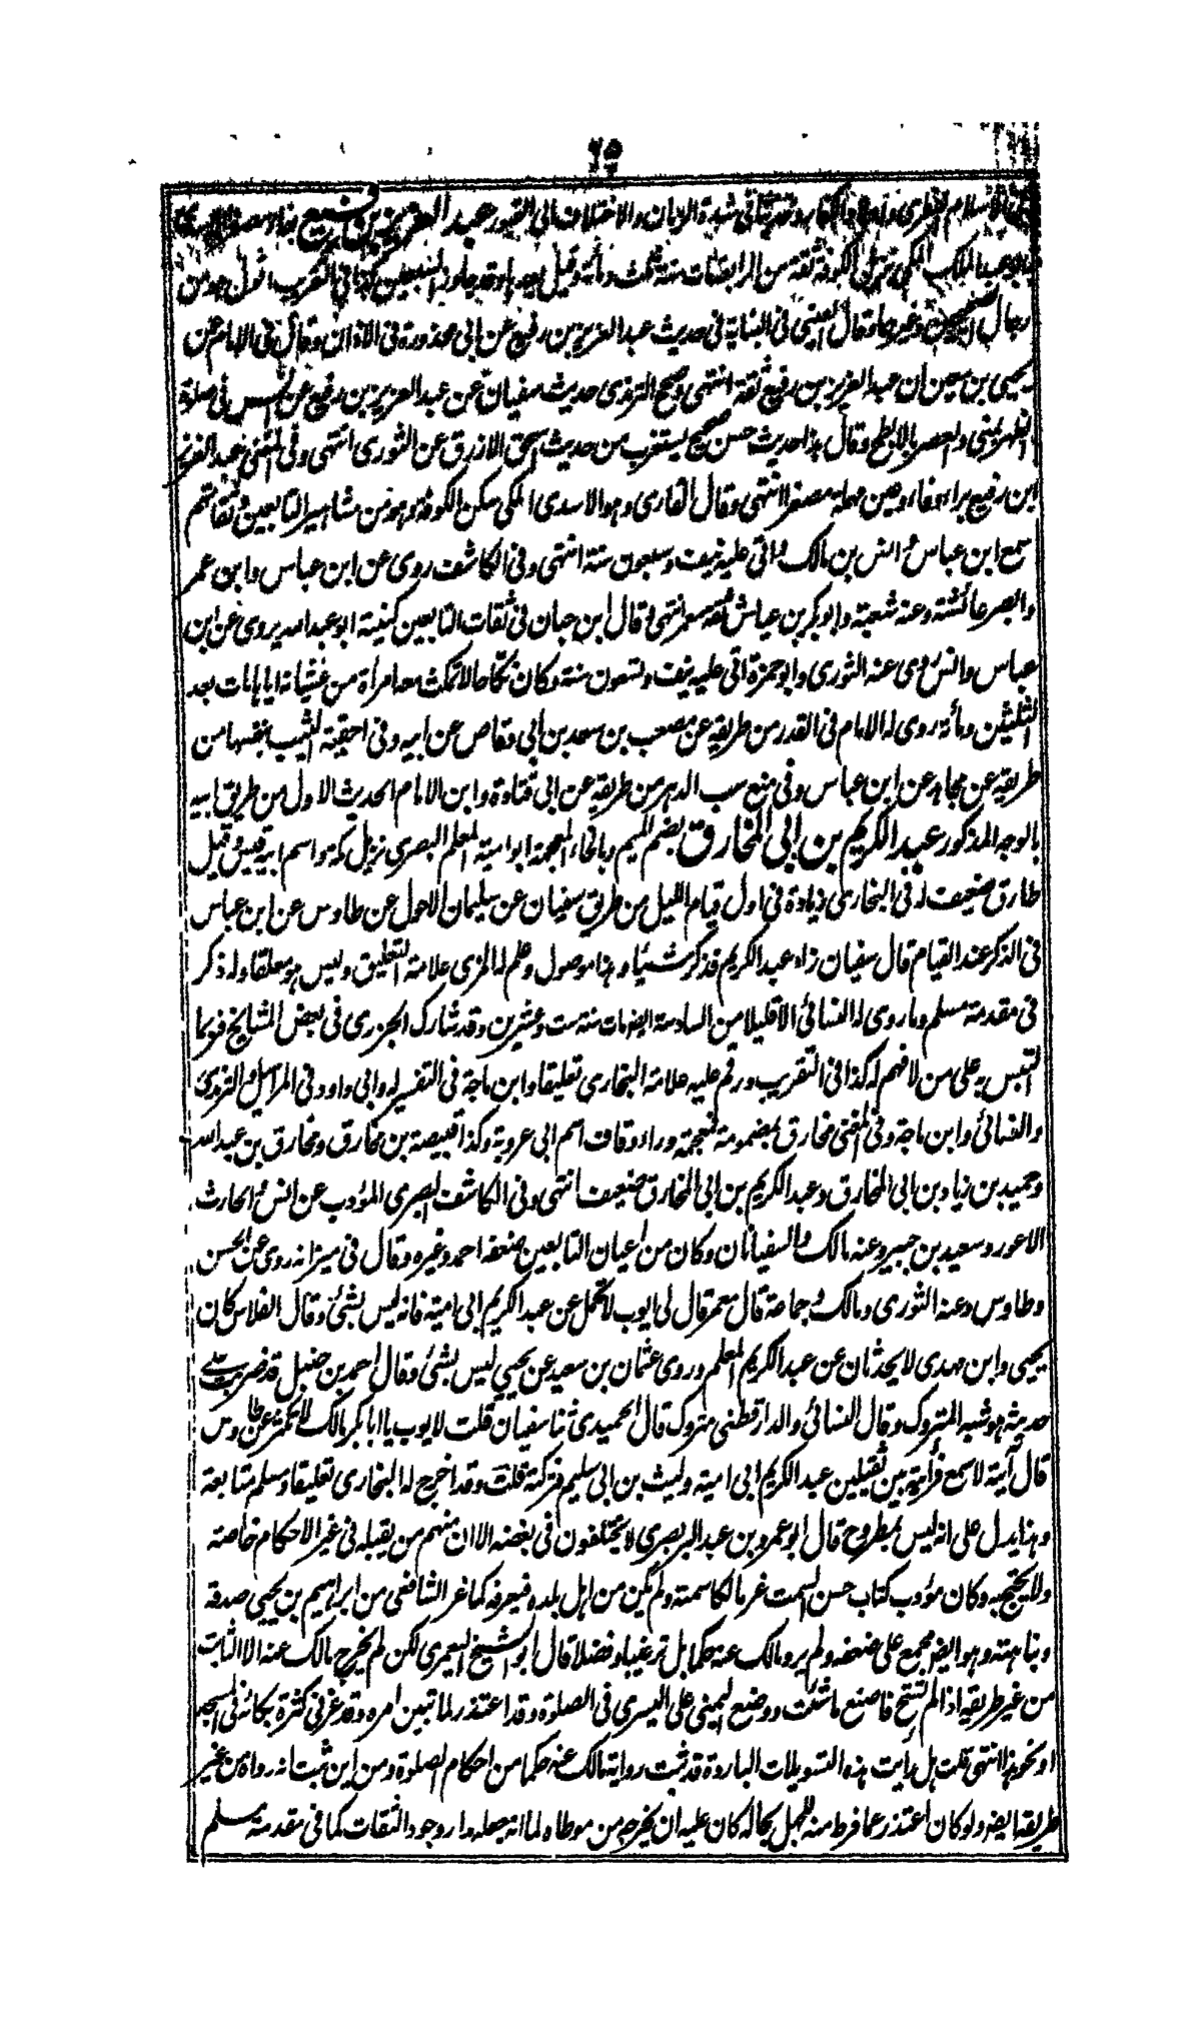 ٦٥
الاسلام الفطرى شدة الزمان والاختلاف الى القبور عبد العزيز بن رفيع بفاء مصغرا الاسدى
ابو عبد الملك المكى نزيل الكوفة ثقة من الرابعة مات سنة ثلث ومأة وقيل بعدها وقد جاوز السبعين كذا فى التقريب اقول هو من
رجال الصحيحين وغيرها وقال العينى فى البناية فى حديث عبد العزيز بن رفيع عن ابى محذورة فى الاذان وقال فى الامام عن
يحيى بن معين ان عبد العزيز بن رفيع ثقة انتهى وصحح الترمذى حديث سفيان عن عبد العزيز بن رفيع عن انس فى صلوة
الظهر بمنى والعصر بالابطح وقال هذا حديث حسن صحيح يستغرب من حديث اسحق الازرق عن الثورى انتهى وفى المغنى عبد العزيز
ابن رفيع براء وفاء وعين مهملة مصغرا انتهى وقال القارى وهو الاسدى المكى سكن الكوفة وهو من مشاهير التابعين وثقاتهم
سمع ابن عباس وانس بن مالك واتى عليه نيف وسبعون سنة انتهى وفى الكاشف روى عن ابن عباس وابن عمر
وابصر عائشة وعنه شعبة وابو بكر بن عياش ثقة معمر انتهى وقال ابن حبان فى ثقات التابعين كنيته ابو عبد الله يروى عن ابن
عباس وانس روى عنه الثورى وابو حمزة اتى عليه نيف وتسعون سنة وكان نكاحا لا تمكث معه امرأة من غشيانه اياها مات بعد
الثلثين ومأة روى له الامام فى القدر من طريقه عن مصعب بن سعد بن ابى وقاص عن ابيه وفى احقية الثيب بنفسها من
طريقه عن مجاهد عن ابن عباس وفى منع سب الدهر من طريقه عن ابى قتادة وابن الامام الحديث الاول من طريق ابيه
بالوجه المذكور عبد الكريم بن ابى المخارق بضم الميم وبالخاء المعجمة ابو امية المعلم البصرى نزيل مكة واسم ابيه قيس وقيل
طارق ضعيف له فى البخارى زيادة فى اول قيام الليل من طريق سفيان عن سليمان الاحول عن طاوس عن ابن عباس
فى الذكر عند القيام قال سفيان زاد عبد الكريم فذكر شيئا وهذا موصول وعلم له المزى علامة التعليق وليس هو معلقا وله ذكر
فى مقدمة مسلم وما روى له النسائى الا قليلا من السادسة ايضا مات سنة ست وعشرين وقد شارك الجزرى فى بعض المشايخ فربما
التبس به على من لا فهم له كذا فى التقريب ورقم عليه علامة البخارى تعليقا وابن ماجة فى التفسير له وابى داود فى المراسيل والترمذى
والنسائى وابن ماجة وفى المغنى مخارق بمضمومة فمعجمة وراء وقاف اسم ابى عروبة وكذا قبيصة بن مخارق ومخارق بن عبد الله
وحميد بن زياد بن ابى المخارق وعبد الكريم بن ابى المخارق ضعيف انتهى وفى الكاشف البصرى المؤدب عن انس والحارث
الاعور وسعيد بن جبير وعنه مالك والسفيانان وكان من اعيان التابعين ضعفه احمد وغيره وقال فى ميزانه روى عن الحسن
وطاوس وعنه الثورى ومالك وجماعة قال معمر قال لى ايوب لا تحمل عن عبد الكريم ابى امية فانه ليس بشئ وقال الفلاس كان
يحيى وابن مهدى لا يحدثان عن عبد الكريم المعلم وروى عثمان بن سعيد عن يحيى ليس بشئ وقال احمد بن حنبل قد ضربت على
حديثه هو شبه المتروك وقال النسائى والدارقطنى متروك قال الحميدى ثنا سفيان قلت لايوب يا ابا بكر مالك لا تكثر عن طاوس
قال آتيته لاسمع فرأيته بين ثقيلين عبد الكريم ابى امية وليث بن ابى سليم فتركته قلت وقد اخرج له البخارى تعليقا ومسلم متابعة
وهذا يدل على انه ليس بمطروح قال ابو عمرو بن عبد البر بصرى لا يختلفون فى بغضه الا ان منهم من يقبله فى غير الاحكام خاصة
ولا يحتج به وكان مؤدب كتاب حسن السمت غر مالكا سمته ولم يكن من اهل بلده فيعرفه كما غر الشافعى من ابراهيم بن يحيى صدقه
ونباهته وهو ايضا مجمع على ضعفه ولم يرو مالك عنه حكما بل ترغيبا وفضلا قال ابو الشيخ اليعمرى لكن لم يخرج مالك عنه الا الثابت
من غير طريقه اذا لم تستح فاصنع ما شئت ووضع اليمنى على اليسرى فى الصلوة وقد اعتذر لما تبين امره وقد غرنى كثرة بكائه فى المسجد
او نحو هذا انتهى قلت هل رايت هذه التسويلات الباردة قد ثبت رواية مالك عنه حكما من احكام الصلوة ومن اين ثبت انه رواه من غير
طريقه ايضا ولو كان اعتذر عما فرط منه للجهل بحاله كان عليه ان يخرجه من موطاه ولما انه جعله دار وجود الثقات كما فى مقدمة مسلم